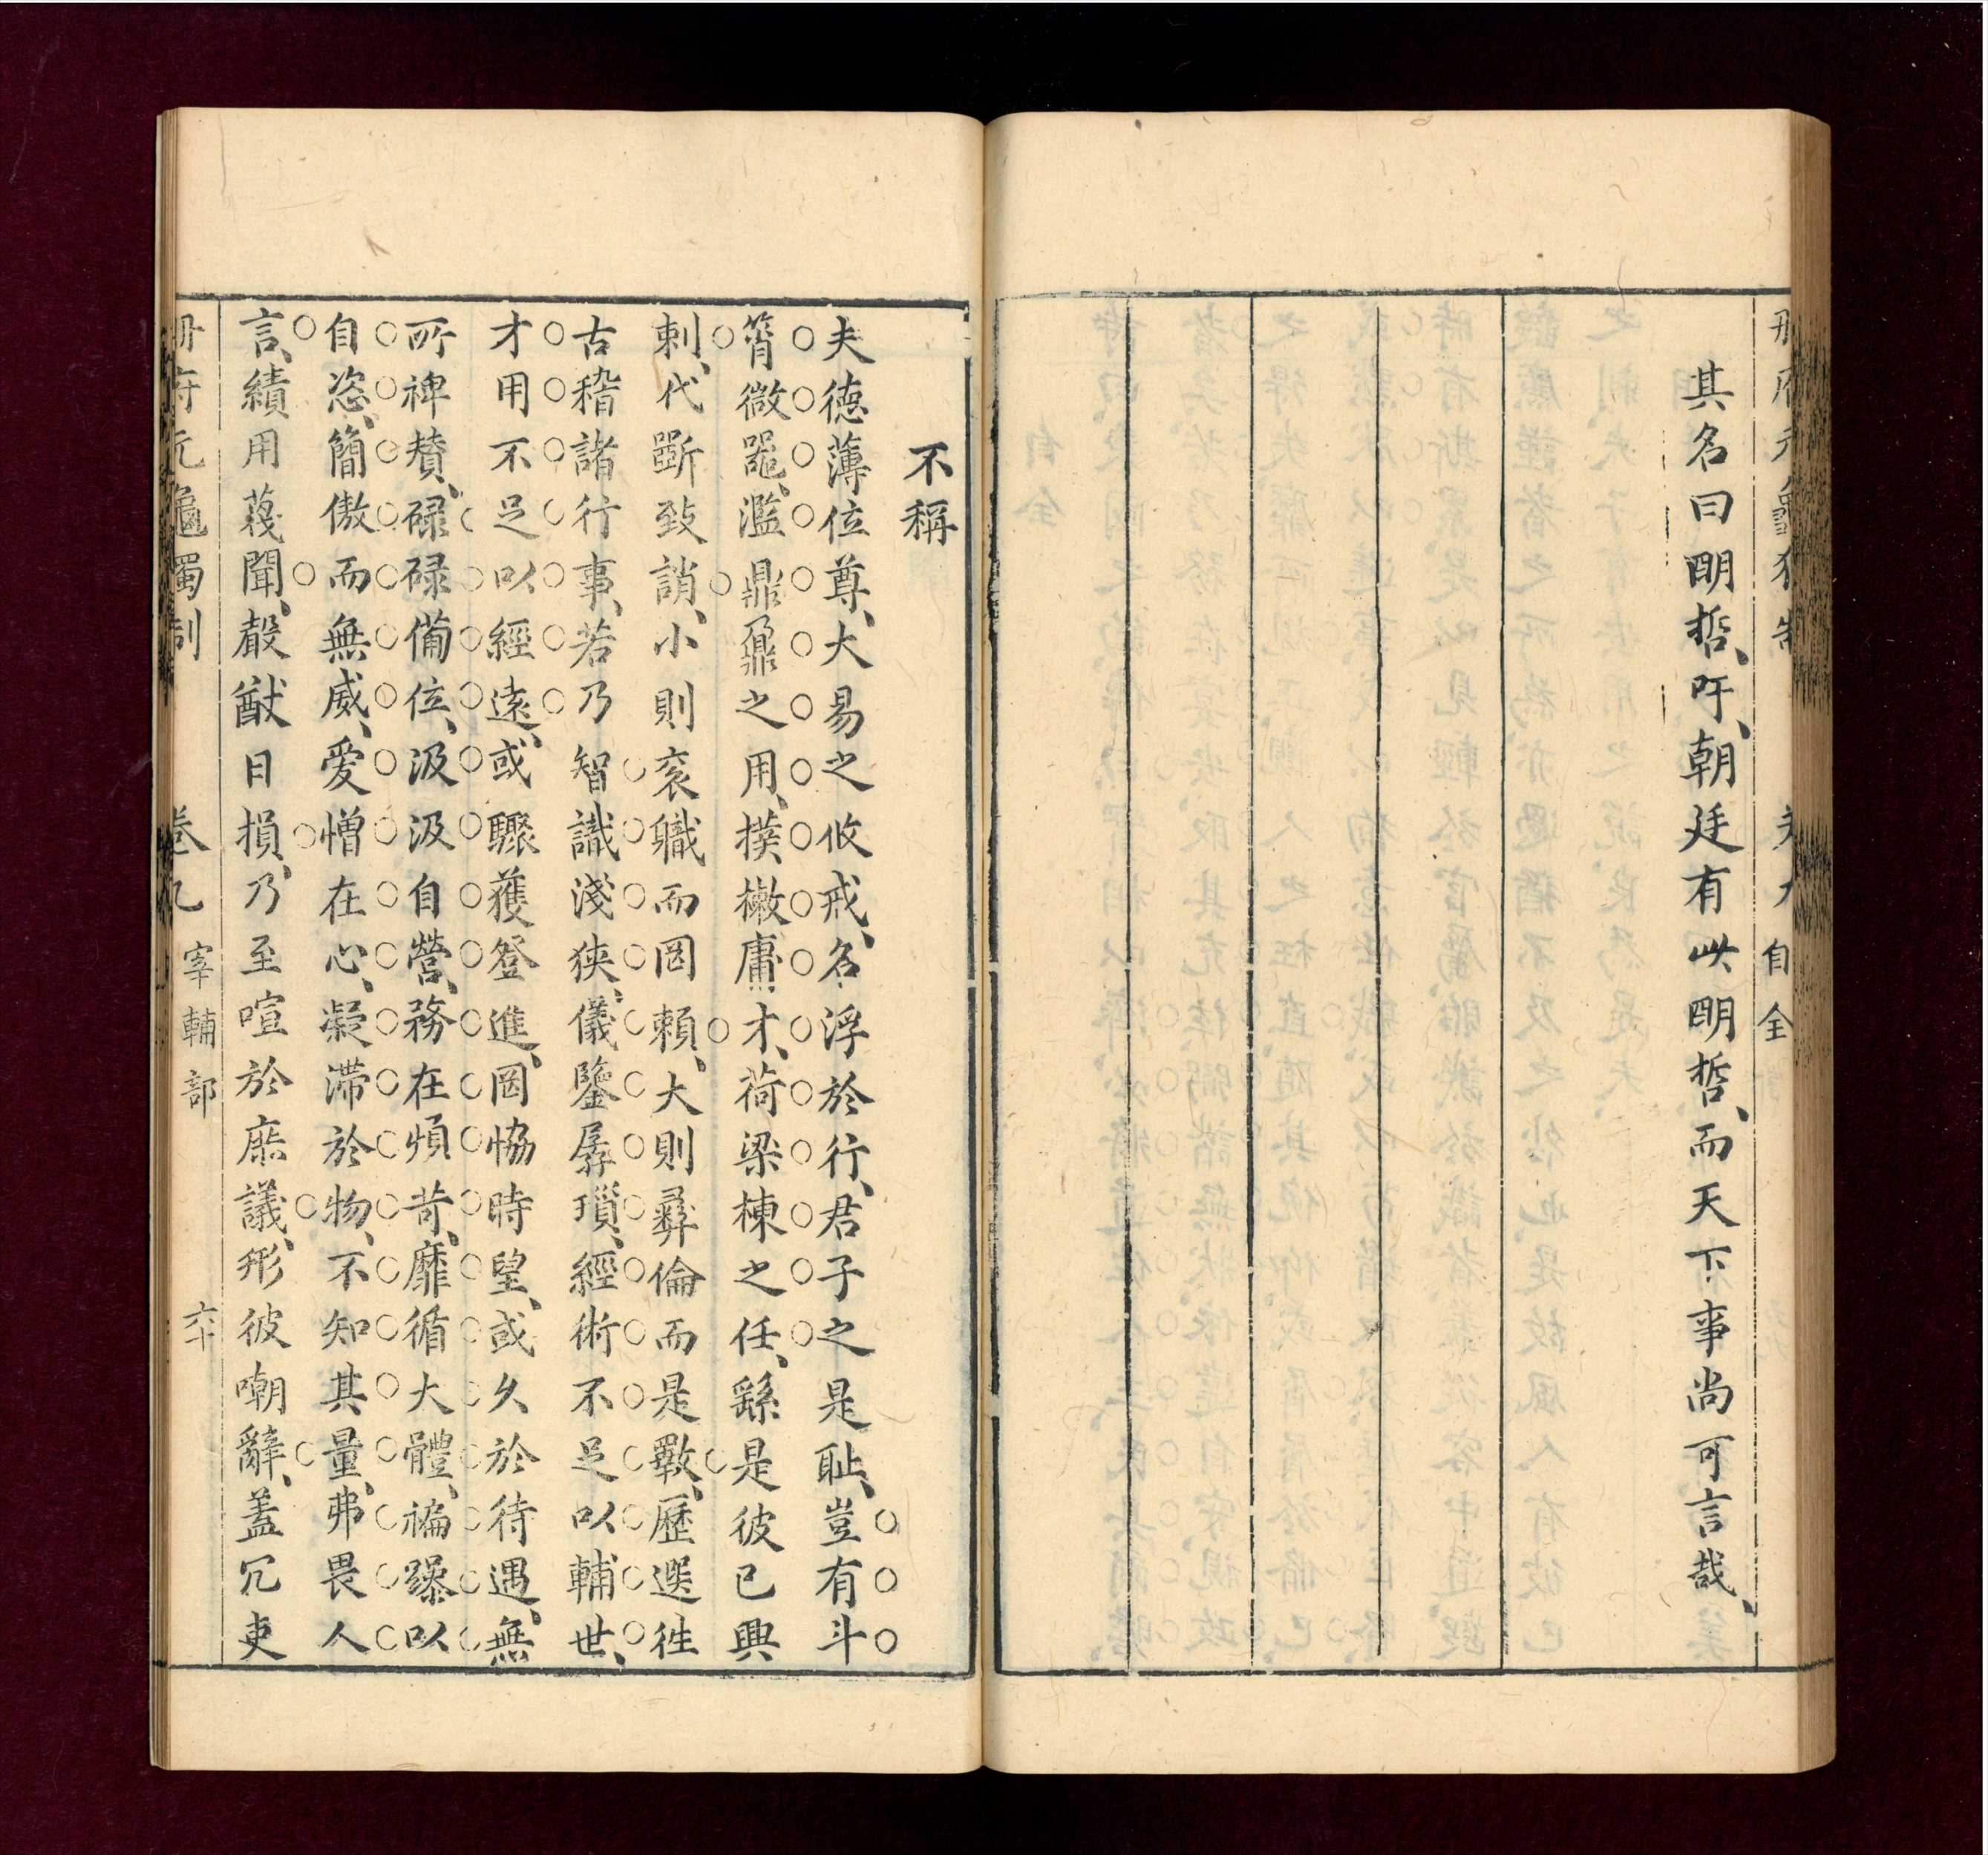 自全
其名曰明哲、吁、朝廷有此明哲、而天下事尚可言哉、
不稱
夫德薄位尊、大易之攸戒、名浮於行、君子之是恥、豈有斗
筲微噐、濫鼎鼐之用、撲樕庸才、荷梁棟之任、繇是彼已興
刺、代斵致誚、小則衮職而罔賴、大則彛倫而是斁、歷選徃
古、稽諸行事、若乃智識淺狹、儀鑒孱瑣、經術不足以輔世、
才用不足以經遠、或驟獲登進、罔恊時望、或久於待遇、無
所裨賛、碌碌備位、汲汲自營、務在煩苛、靡循大體、褊躁以
自恣、簡傲而無威、愛憎在心、凝滯於物、不知其量、弗畏人
言、績用蔑聞、聲猷日損、乃至喧於庶議、形彼嘲辭、蓋冗吏
冊府元龜獨制 卷九 宰輔部 六十